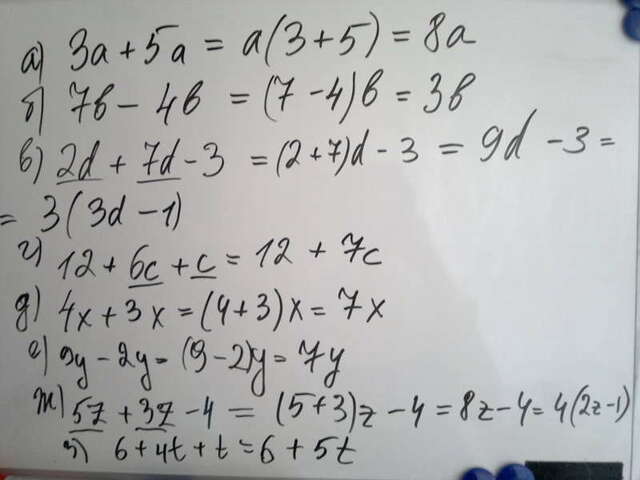 а) 3a + 5a = a(3+5) = 8a
б) 7b - 4b = (7-4)b = 3b
в) 2d + 7d - 3 = (2+7)d - 3 = 9d - 3 =
= 3(3d - 1)
г) 12 + 6c + c = 12 + 7c
д) 4x + 3x = (4+3)x = 7x
е) 9y - 2y = (9-2)y = 7y
ж) 5z + 3z - 4 = (5+3)z - 4 = 8z - 4 = 4(2z-1)
з) 6 + 4t + t = 6 + 5t